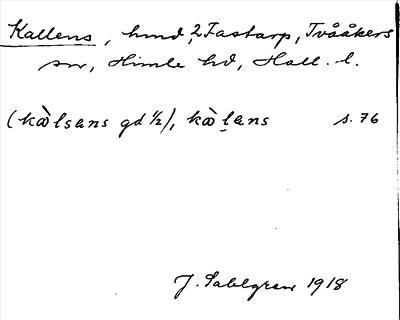 Kallens, hmd, 2 Fastarp, Tvååkers
sn, Himle hd, Hall. l.
(kòlsans gd ½), kòlans s. 76
J. Sahlgren 1918